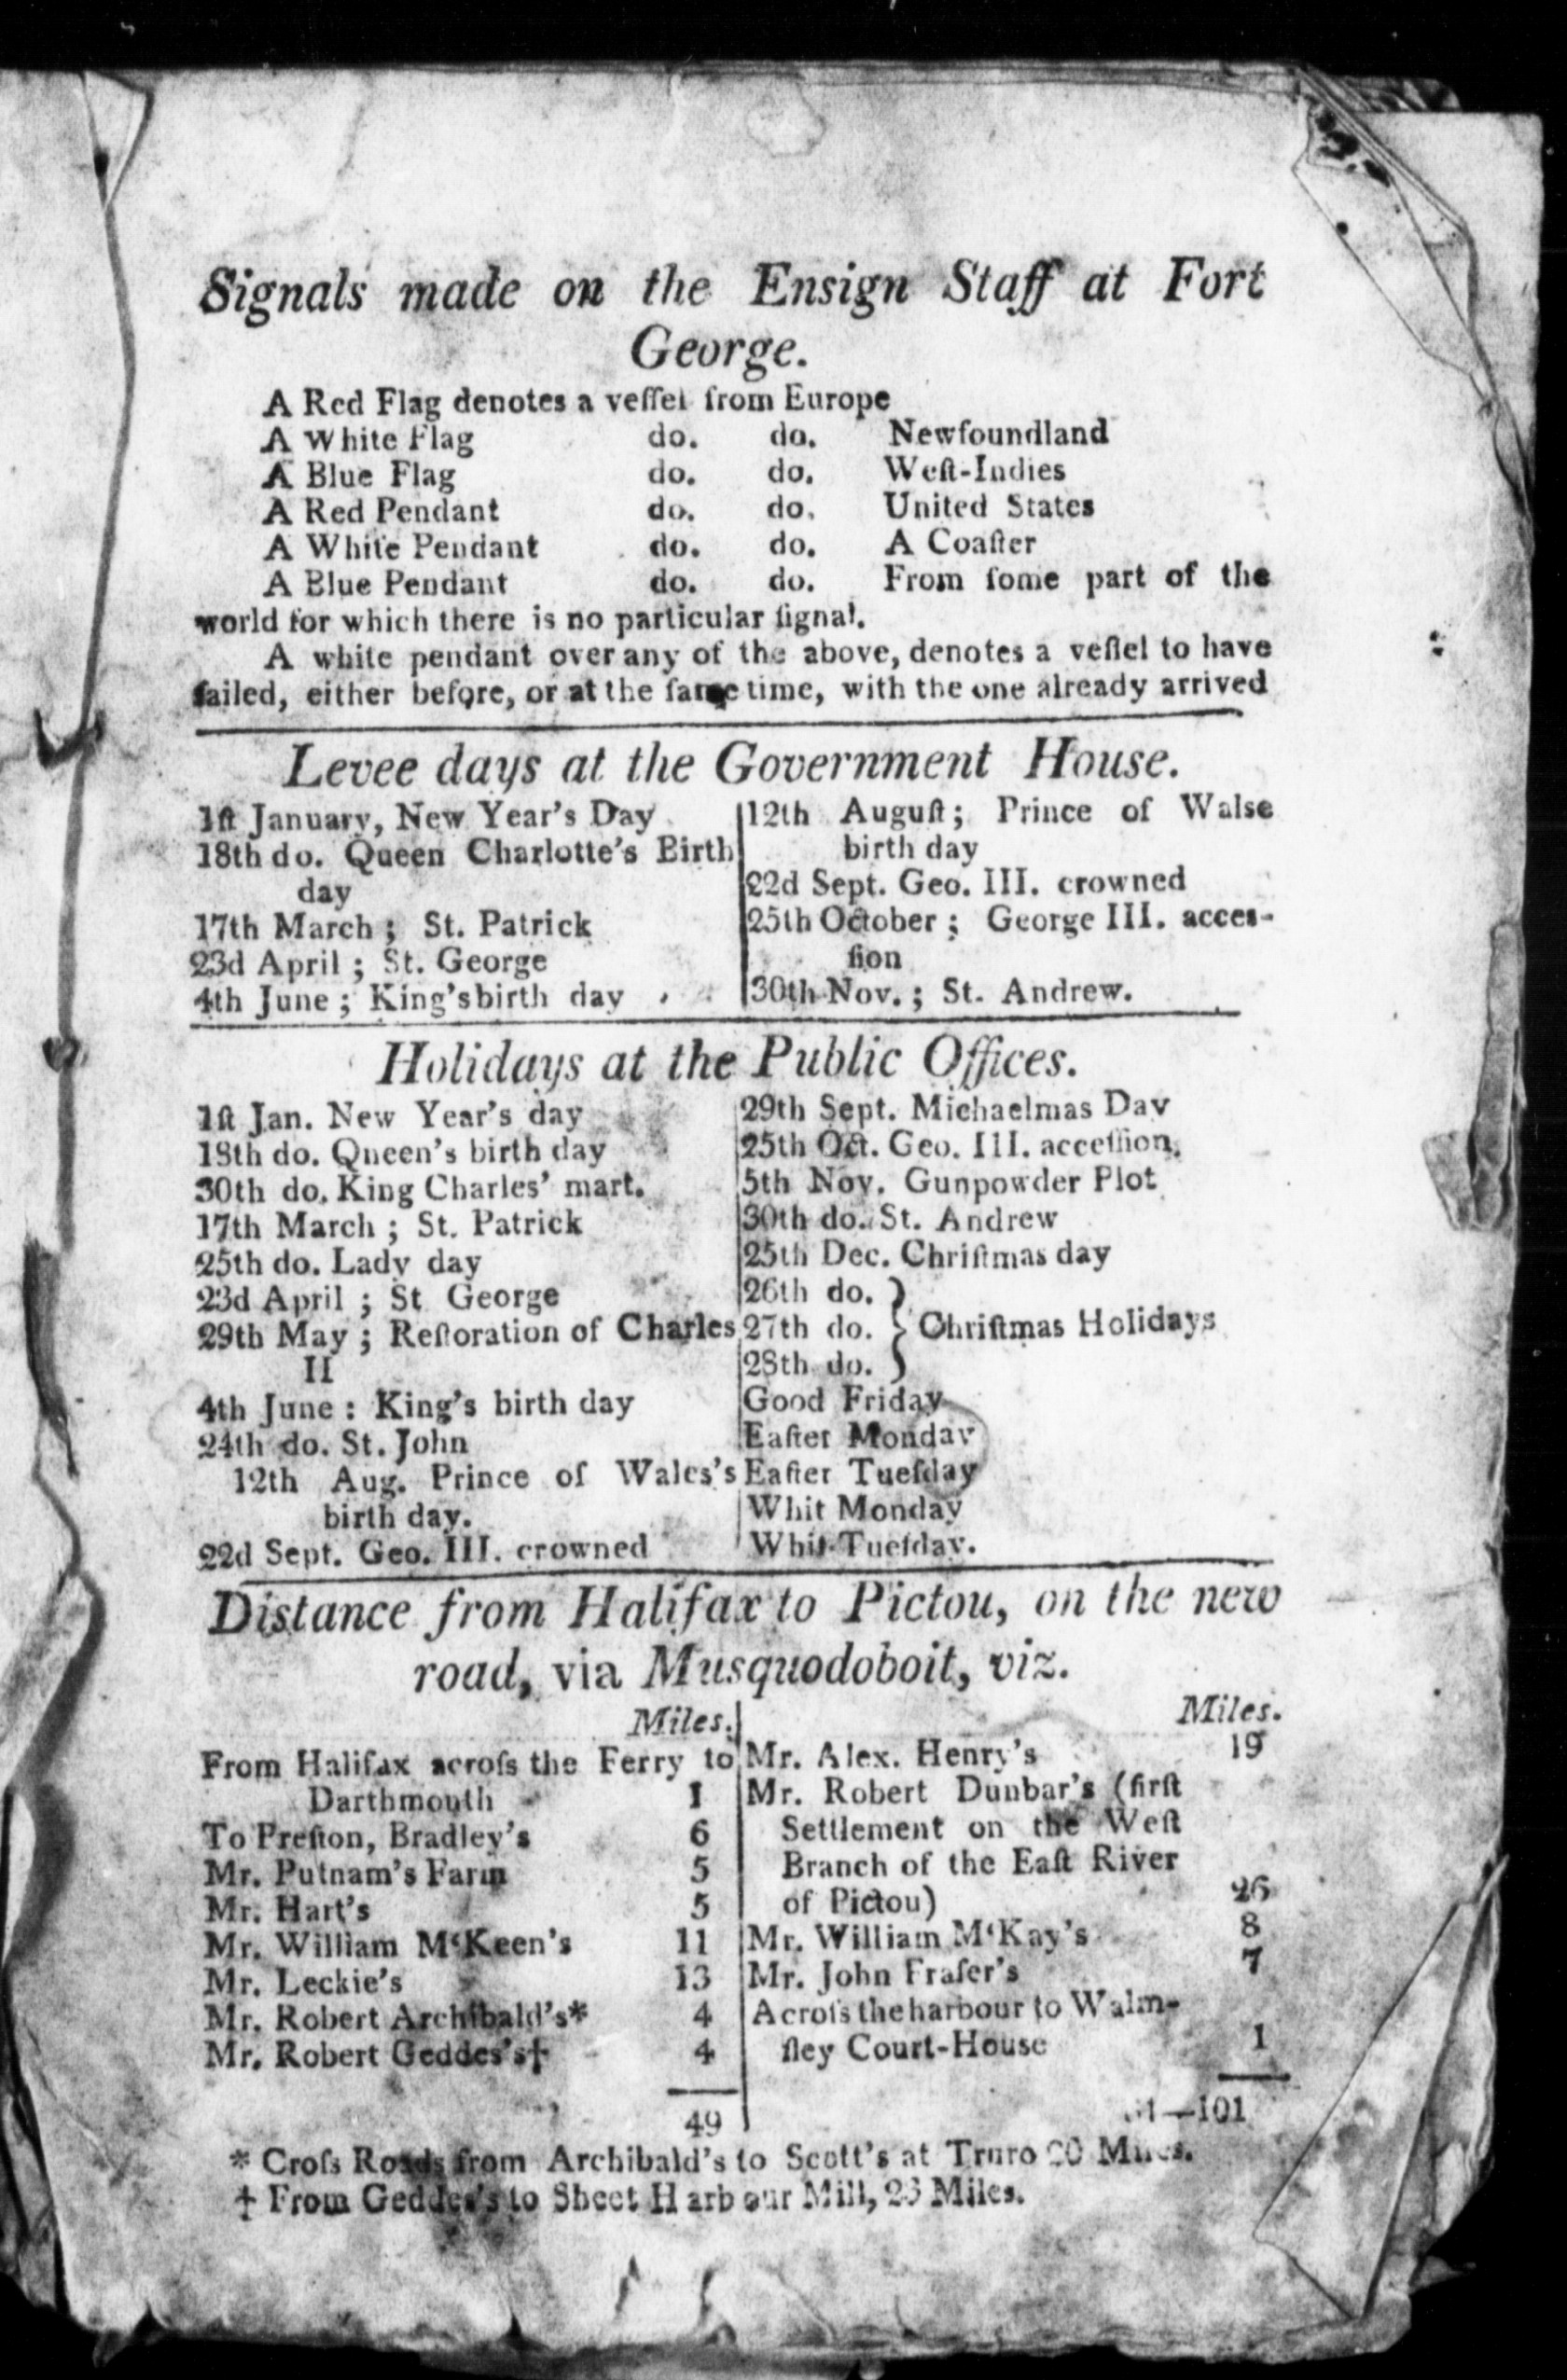 Signals made on the Ensign Staff at Fort
George.
A Red Flag denotes a veſſel from Europe
A White Flag do. do. Newfoundland
A Blue Flag do. do. Weſt-Indies
A Red Pendant do. do. United States
A White Pendant do. do. A Coaſter
A Blue Pendant do. do. From ſome part of the
world for which there is no particular ſignal.
A white pendant over any of the above, denotes a veſſel to have
ſailed, either before, or at the ſame time, with the one already arrived
Levee days at the Government House.
1ſt January, New Year's Day
18th do. Queen Charlotte's Birth
day
17th March ; St. Patrick
23d April ; St. George
4th June ; King's birth day
12th Auguſt ; Prince of Walse
birth day
22d Sept. Geo. III. crowned
25th October ; George III. acces-
ſion
30th Nov. ; St. Andrew.
Holidays at the Public Offices.
1ſt Jan. New Year's day
18th do. Queen's birth day
30th do. King Charles' mart.
17th March ; St. Patrick
25th do. Lady day
23d April ; St George
29th May ; Reſtoration of Charles
II
4th June : King's birth day
24th do. St. John
12th Aug. Prince of Wales's
birth day.
22d Sept. Geo. III. crowned
29th Sept. Michaelmas Day
25th Oct. Geo. III. acceſſion.
5th Nov. Gunpowder Plot
30th do. St. Andrew
25th Dec. Chriſtmas day
26th do. }
27th do. } Chriſtmas Holidays
28th do. }
Good Friday
Eaſter Monday
Eaſter Tueſday
Whit Monday
Whit-Tueſday.
Distance from Halifax to Pictou, on the new
road, via Musquodoboit, viz.
Miles.
From Halifax acroſs the Ferry to
Darthmouth 1
To Preſton, Bradley's 6
Mr. Putnam's Farm 5
Mr. Hart's 5
Mr. William M‘Keen's 11
Mr. Leckie's 13
Mr. Robert Archibald's* 4
Mr. Robert Geddes's† 4
49
Miles.
Mr. Alex. Henry's 19
Mr. Robert Dunbar's (firſt
Settlement on the Weſt
Branch of the Eaſt River
of Pictou) 26
Mr. William M‘Kay's 8
Mr. John Fraſer's 7
Acroſs the harbour to Walm-
ſley Court-House 1
—101
* Croſs Roads from Archibald's to Scott's at Truro 20 Miles.
† From Geddes's to Sheet Harbour Mill, 23 Miles.